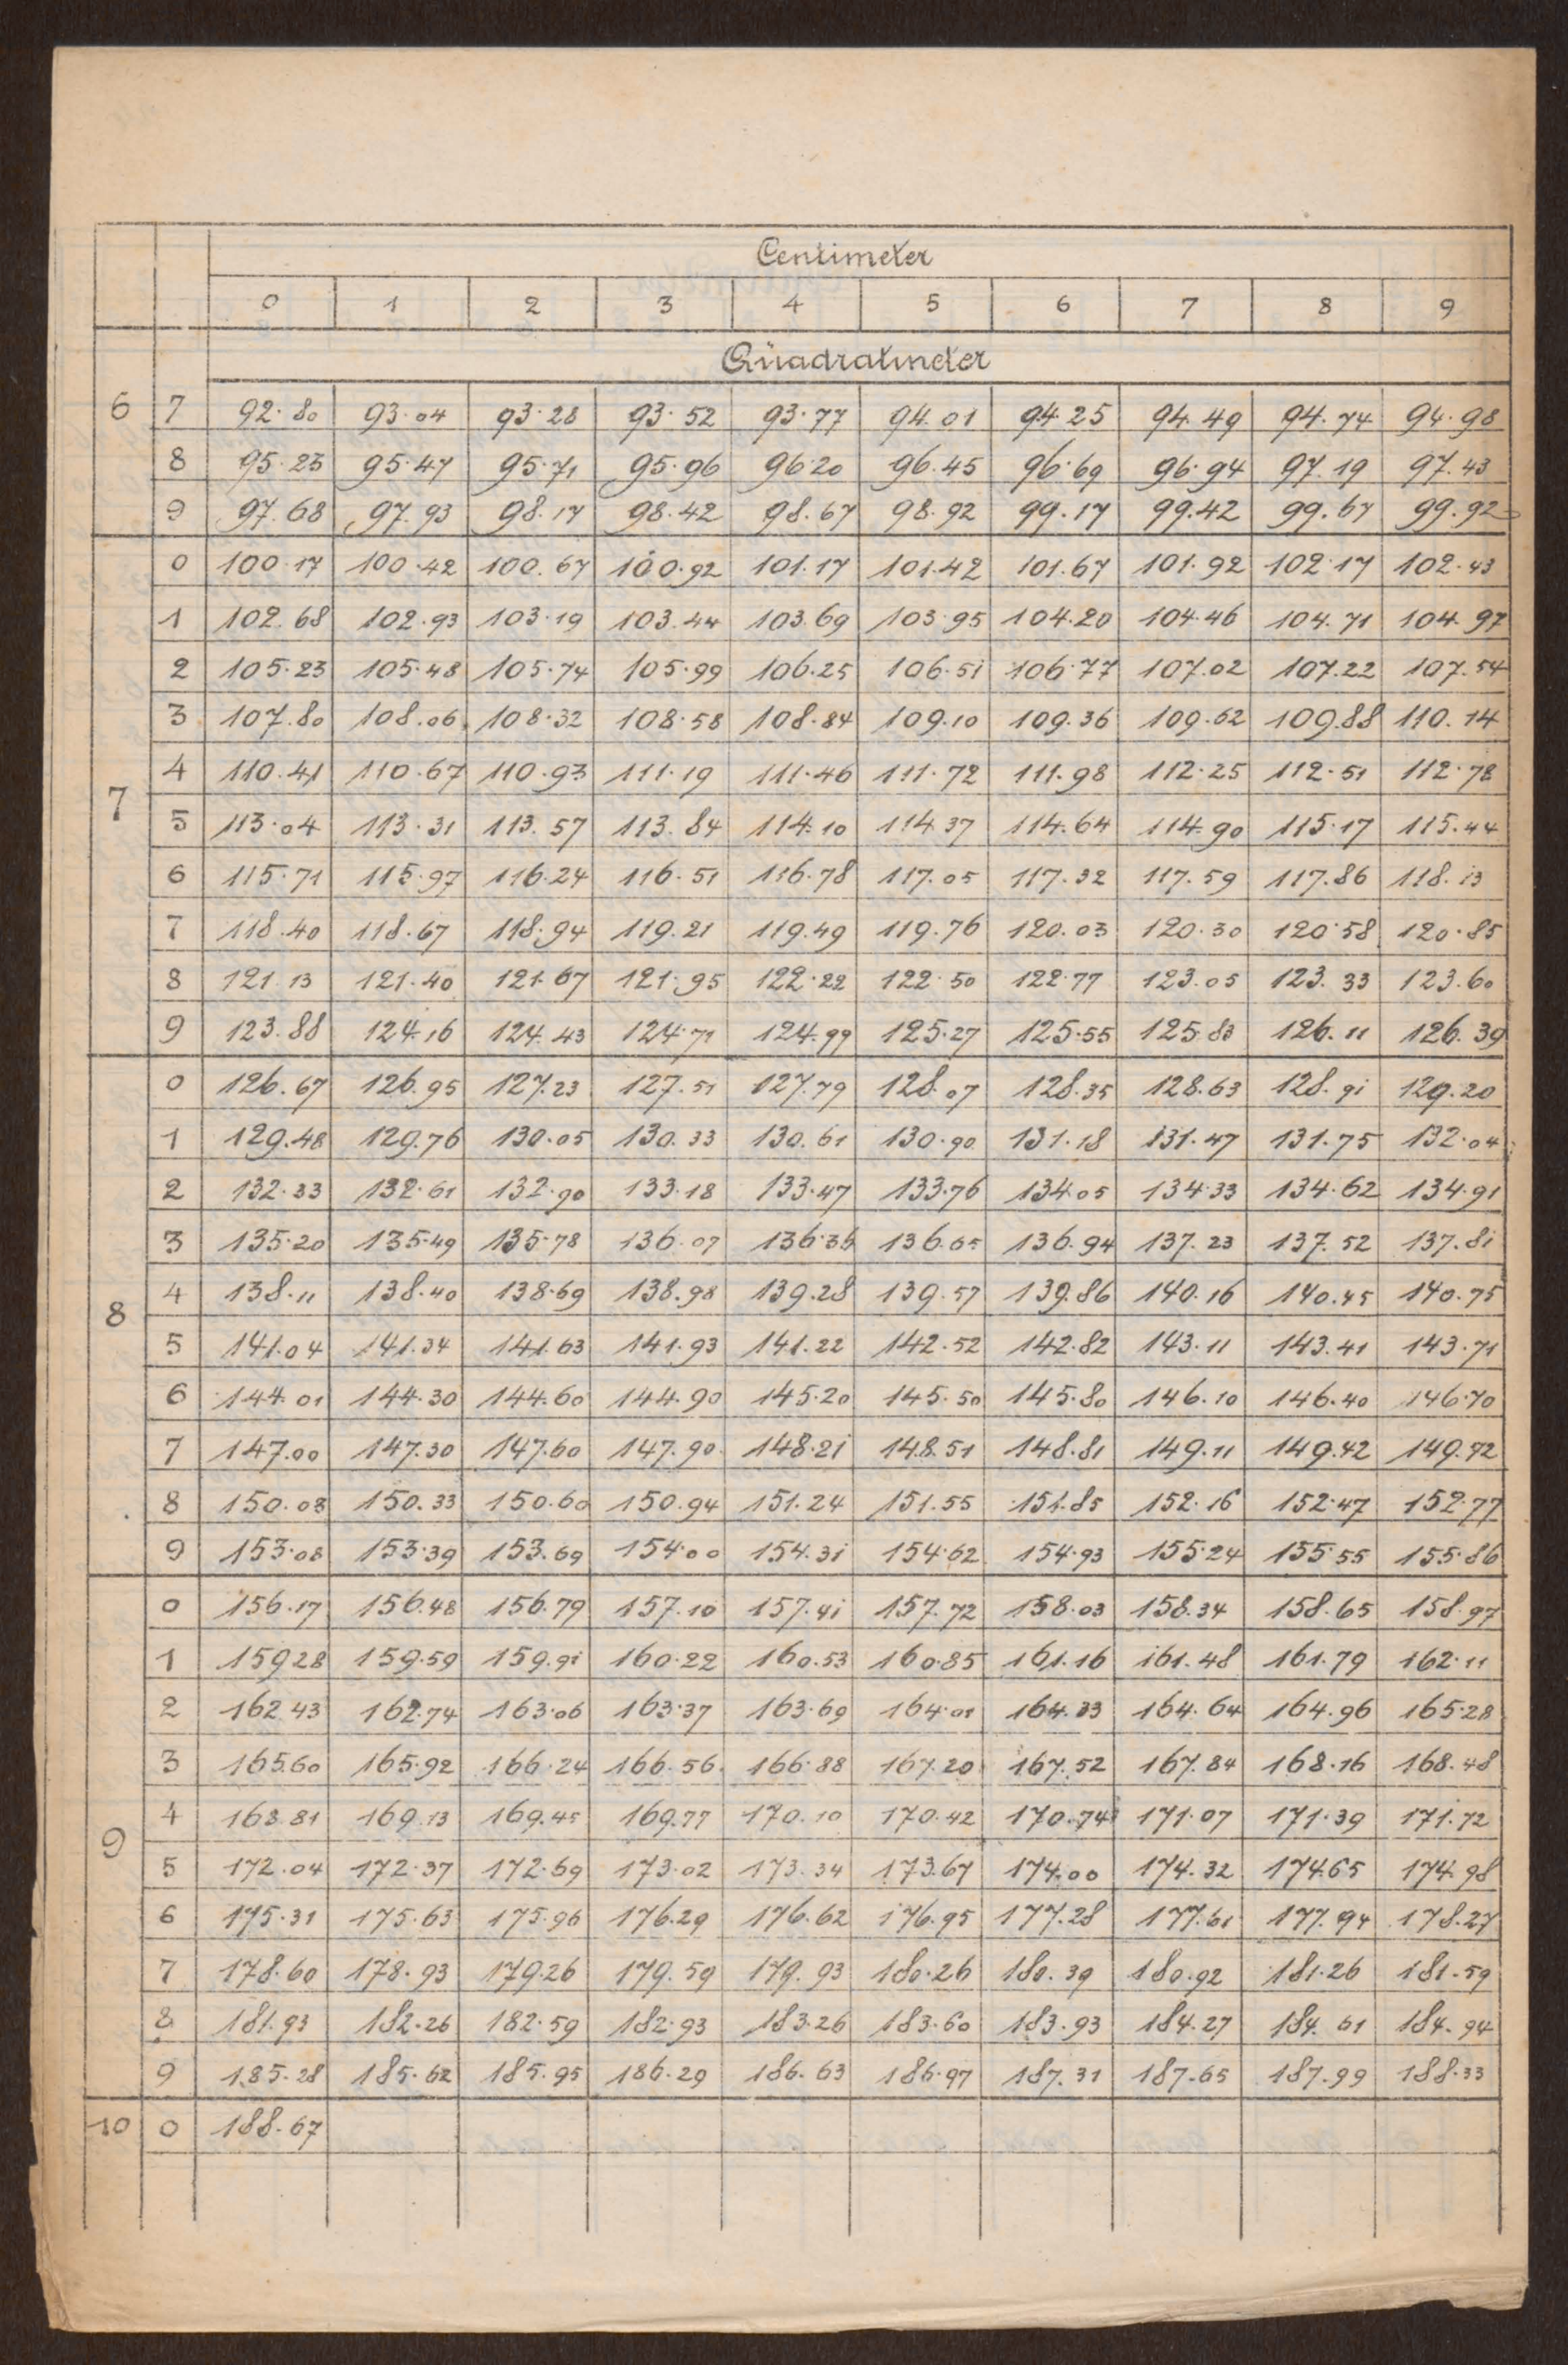 Centimeter
0 1 2 3 4 5 6 7 8 9
Quadratmeter
6 7 92.80 93.04 93.28 93.52 93.77 94.01 94.25 94.49 94.74 94.98
8 95.23 95.47 95.71 95.96 96.20 96.45 96.69 96.94 97.19 97.43
9 97.68 97.93 98.17 98.42 98.67 98.92 99.17 99.42 99.67 99.92
0 100.17 100.42 100.67 100.92 101.17 101.42 101.67 101.92 102.17 102.43
1 102.68 102.93 103.19 103.44 103.69 103.95 104.20 104.46 104.71 104.97
2 105.23 105.48 105.74 105.99 106.25 106.51 106.77 107.02 107.22 107.54
3 107.80 108.06 108.32 108.58 108.84 109.10 109.36 109.62 109.88 110.14
4 110.41 110.67 110.93 111.19 111.46 111.72 111.98 112.25 112.51 112.78
7 5 113.04 113.31 113.57 113.84 114.10 114.37 114.64 114.90 115.17 115.44
6 115.71 115.97 116.24 116.51 116.78 117.05 117.32 117.59 117.86 118.13
7 118.40 118.67 118.94 119.21 119.49 119.76 120.03 120.30 120.58 120.85
8 121.13 121.40 121.67 121.95 122.22 122.50 122.77 123.05 123.33 123.60
9 123.88 124.16 124.43 124.71 124.99 125.27 125.55 125.83 126.11 126.39
0 126.67 126.95 127.23 127.51 127.79 128.07 128.35 128.63 128.91 129.20
1 129.48 129.76 130.05 130.33 130.61 130.90 131.18 131.47 131.75 132.04
2 132.33 132.61 132.90 133.18 133.47 133.76 134.05 134.33 134.62 134.91
3 135.20 135.49 135.78 136.07 136.36 136.65 136.94 137.23 137.52 137.81
8 4 138.11 138.40 138.69 138.98 139.28 139.57 139.86 140.16 140.45 140.75
5 141.04 141.34 141.63 141.93 141.22 142.52 142.82 143.11 143.41 143.71
6 144.01 144.30 144.60 144.90 145.20 145.50 145.80 146.10 146.40 146.70
7 147.00 147.30 147.60 147.90 148.21 148.51 148.81 149.11 149.42 149.72
8 150.03 150.33 150.60 150.94 151.24 151.55 151.85 152.16 152.47 152.77
9 153.08 153.39 153.69 154.00 154.31 154.62 154.93 155.24 155.55 155.86
0 156.17 156.48 156.79 157.10 157.41 157.72 158.03 158.34 158.65 158.97
1 159.28 159.59 159.91 160.22 160.53 160.85 161.16 161.48 161.79 162.11
2 162.43 162.74 163.06 163.37 163.69 164.01 164.33 164.64 164.96 165.28
3 165.60 165.92 166.24 166.56 166.88 167.20 167.52 167.84 168.16 168.48
9 4 168.81 169.13 169.45 169.77 170.10 170.42 170.74 171.07 171.39 171.72
5 172.04 172.37 172.69 173.02 173.34 173.67 174.00 174.32 174.65 174.98
6 175.31 175.63 175.96 176.29 176.62 176.95 177.28 177.61 177.94 178.27
7 178.60 178.93 179.26 179.59 179.93 180.26 180.39 180.92 181.26 181.59
8 181.93 182.26 182.59 182.93 183.26 183.60 183.93 184.27 184.61 184.94
9 185.28 185.62 185.95 186.29 186.63 186.97 187.31 187.65 187.99 188.33
10 0 188.67